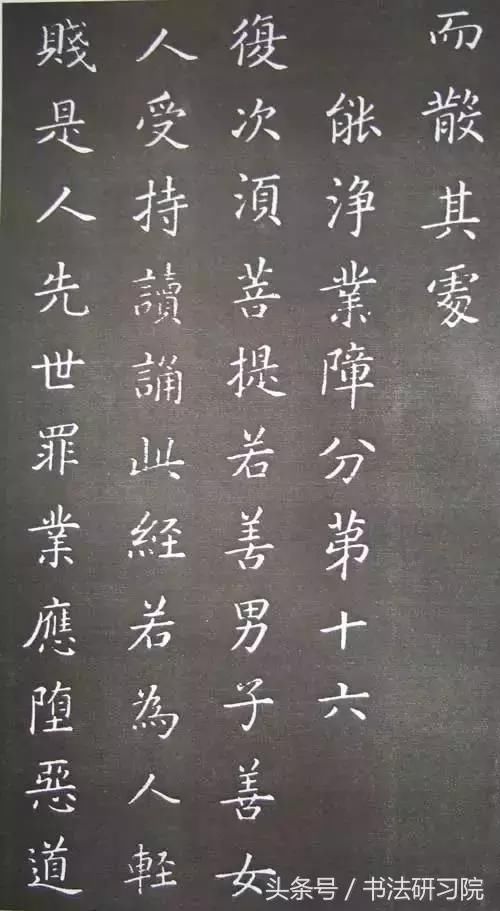 而散其處
能淨業障分第十六
復次須菩提若善男子善女
人受持讀誦此経若為人軽
賤是人先世罪業應堕惡道
头条号／书法研习院